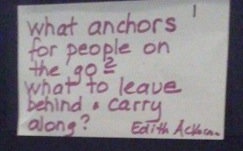 1
what anchors
for people on
the go?
what to leave
behind & carry
along?
Edith Ackerm.